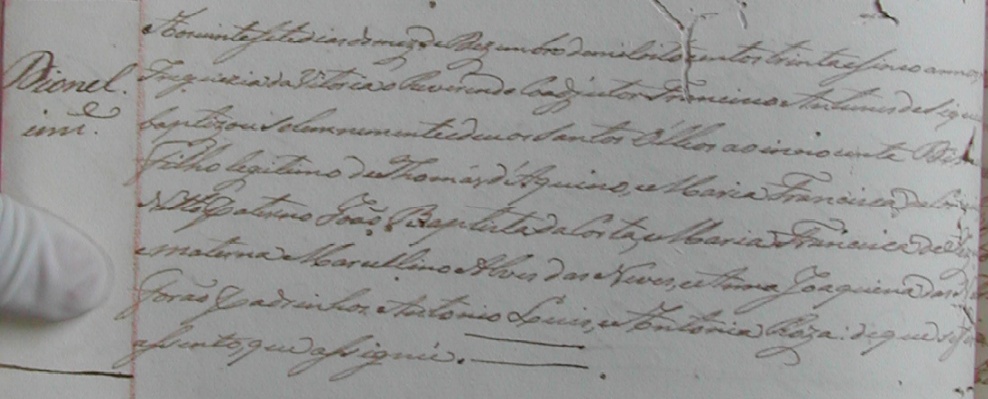 Dionel.
inn.e
Aos vinte sete dias do mez de Dezembro de mil oito centos trinta e sinco annos,
Freguezia da Vitoria o Reverendo Coadjutor Francisco Antunes de Siqu
baptizou solemnemente e deu os Santos Olleos ao innocente
Filho legitimo de Thomás d'Aquino, e Maria Francisca
Netto paterno João Baptista da Costa, e Maria Francisca de
e materno Marcellino Alves das Neves, e Anna Joaquina das
Forão Padrinhos Antonio Luis, e Antonia Roza: de que se fes
assento, que assignei.